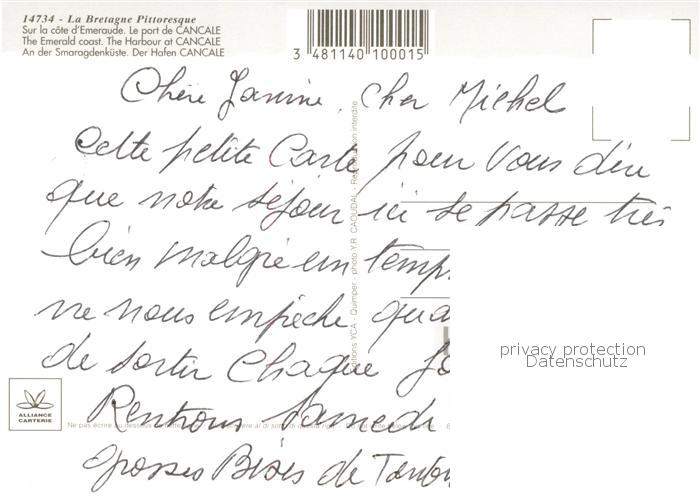 14734 - La Bretagne Pittoresque
Sur la côte d'Emeraude. Le port de CANCALE
The Emerald coast. The Harbour at CANCALE
An der Smaragdenküste. Der Hafen CANCALE
3 481140 100015
Chère Janine, cher Michel
Cette petite Carte pour Vous dire
que notre séjour ici se passe très
bien malgré un temps
ne nous empêche
de sortir Chaque
Rentrons Samedi
grosses Bises de
Editions YCA - Quimper - photo Y.R. CAOUDAL - Reproduction interdite
privacy protection
Datenschutz
ALLIANCE
CARTERIE
Ne pas écrire au dessous de cette